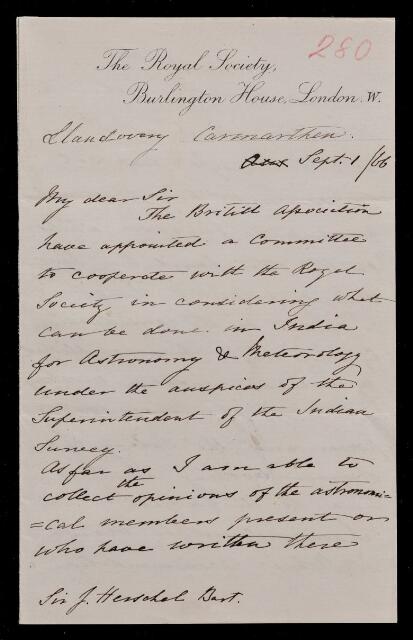 280
The Royal Society,
Burlington House, London. W.
Llandovery Carmarthen.
Sept. 1/66
My dear Sir
The British Association
have appointed a Committee
to cooperate with the Royal
Society in considering what
can be done in India
for Astronomy & Meteorology
under the auspices of the
Superintendent of the Indian
Survey.
As far as I am able to
collect the opinions of the astronomi=
=cal members present or
who have written there
Sir J. Herschel Bart.